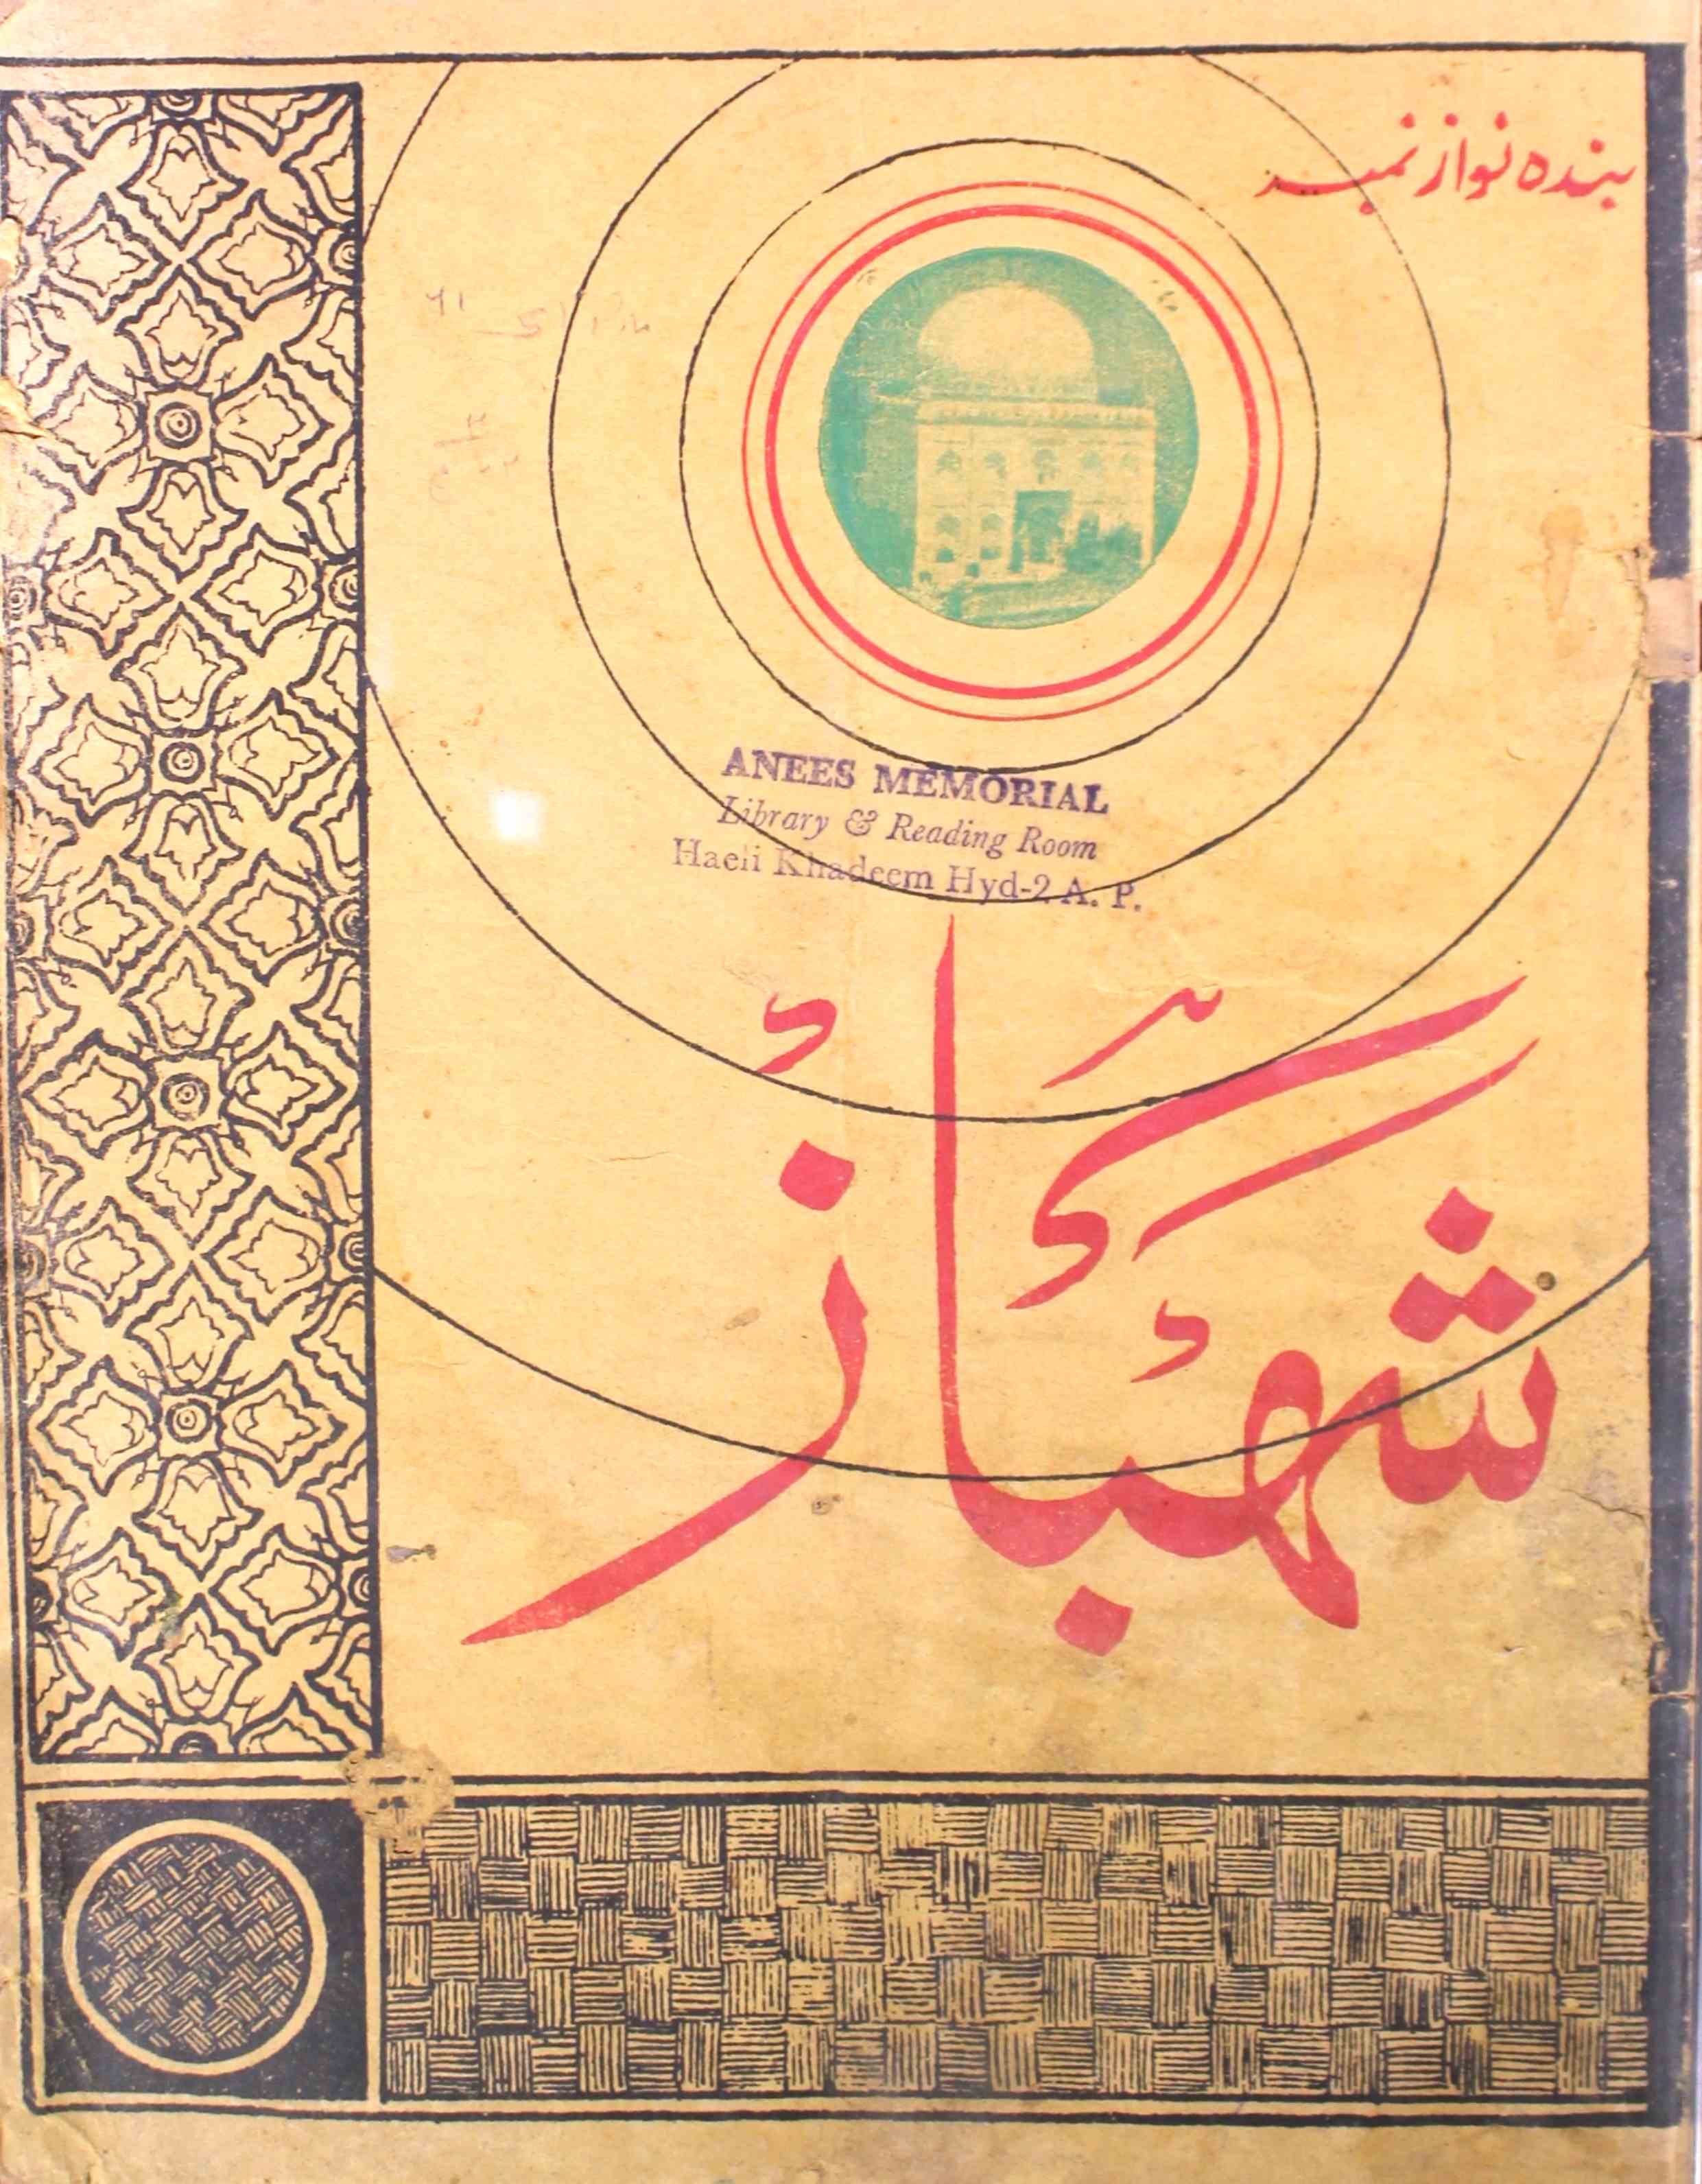 بندہ نواز نمبر
ANEES MEMORIAL
Library & Reading Room
Haeli Khadeem Hyd-2 A. P.
شہباز